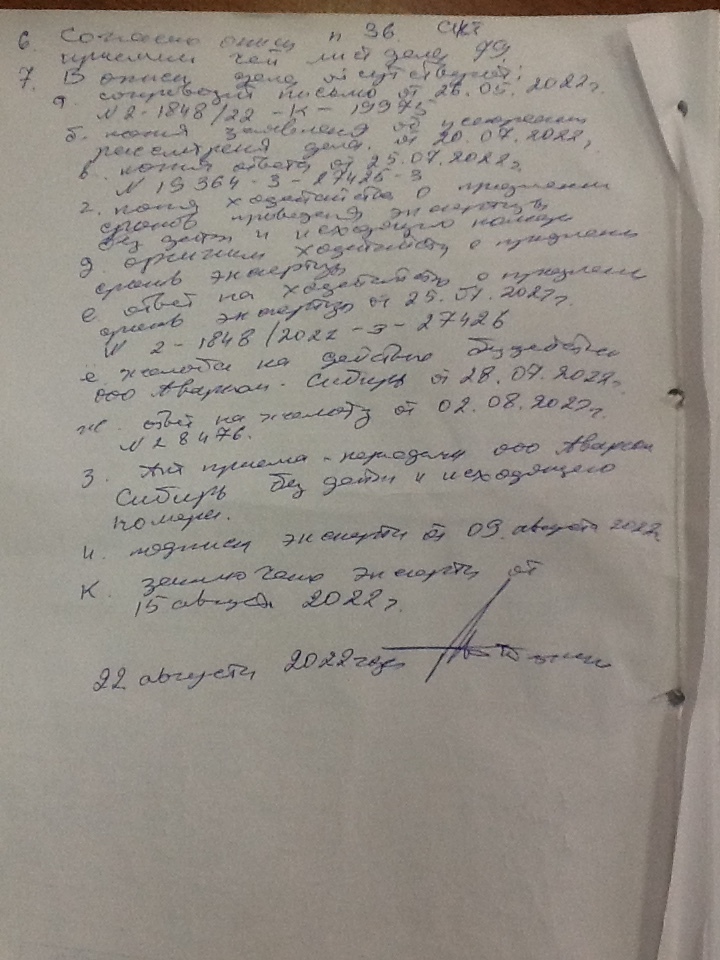 6. Согласно описи п 36.
лист дела 99.
7. В описи дела отсутствует:
а. сопроводит письмо от 26.05.2022г.
N 2-1848/22-К-19975
б. копия заявления об ускорении
рассмотрения дела. от 20.07.2022г,
в. копия ответа от 25.07.2022г,
N 19364-3-27425-3
г. копия ходатайства о продлении
сроков проведения экспертизы
без даты и исходящего номера
д. оригинал ходатайства о продлении
сроков экспертизы
е. ответ на ходатайство о продлении
сроков экспертизы от 25.07.2022г.
N 2-1848/2022-Э-27426
ё. жалоба на действие бездействие
ооо Аварком-Сибирь от 28.07.2022г.
ж. ответ на жалобу от 02.08.2022г.
N 28476.
з. Акт приема-передачи ооо Аварком
Сибирь без даты и исходящего
номера.
и. подписи эксперта от 09 августа 2022г,
к. заключение эксперта от
15 августа 2022г.
22 августа 2022 года